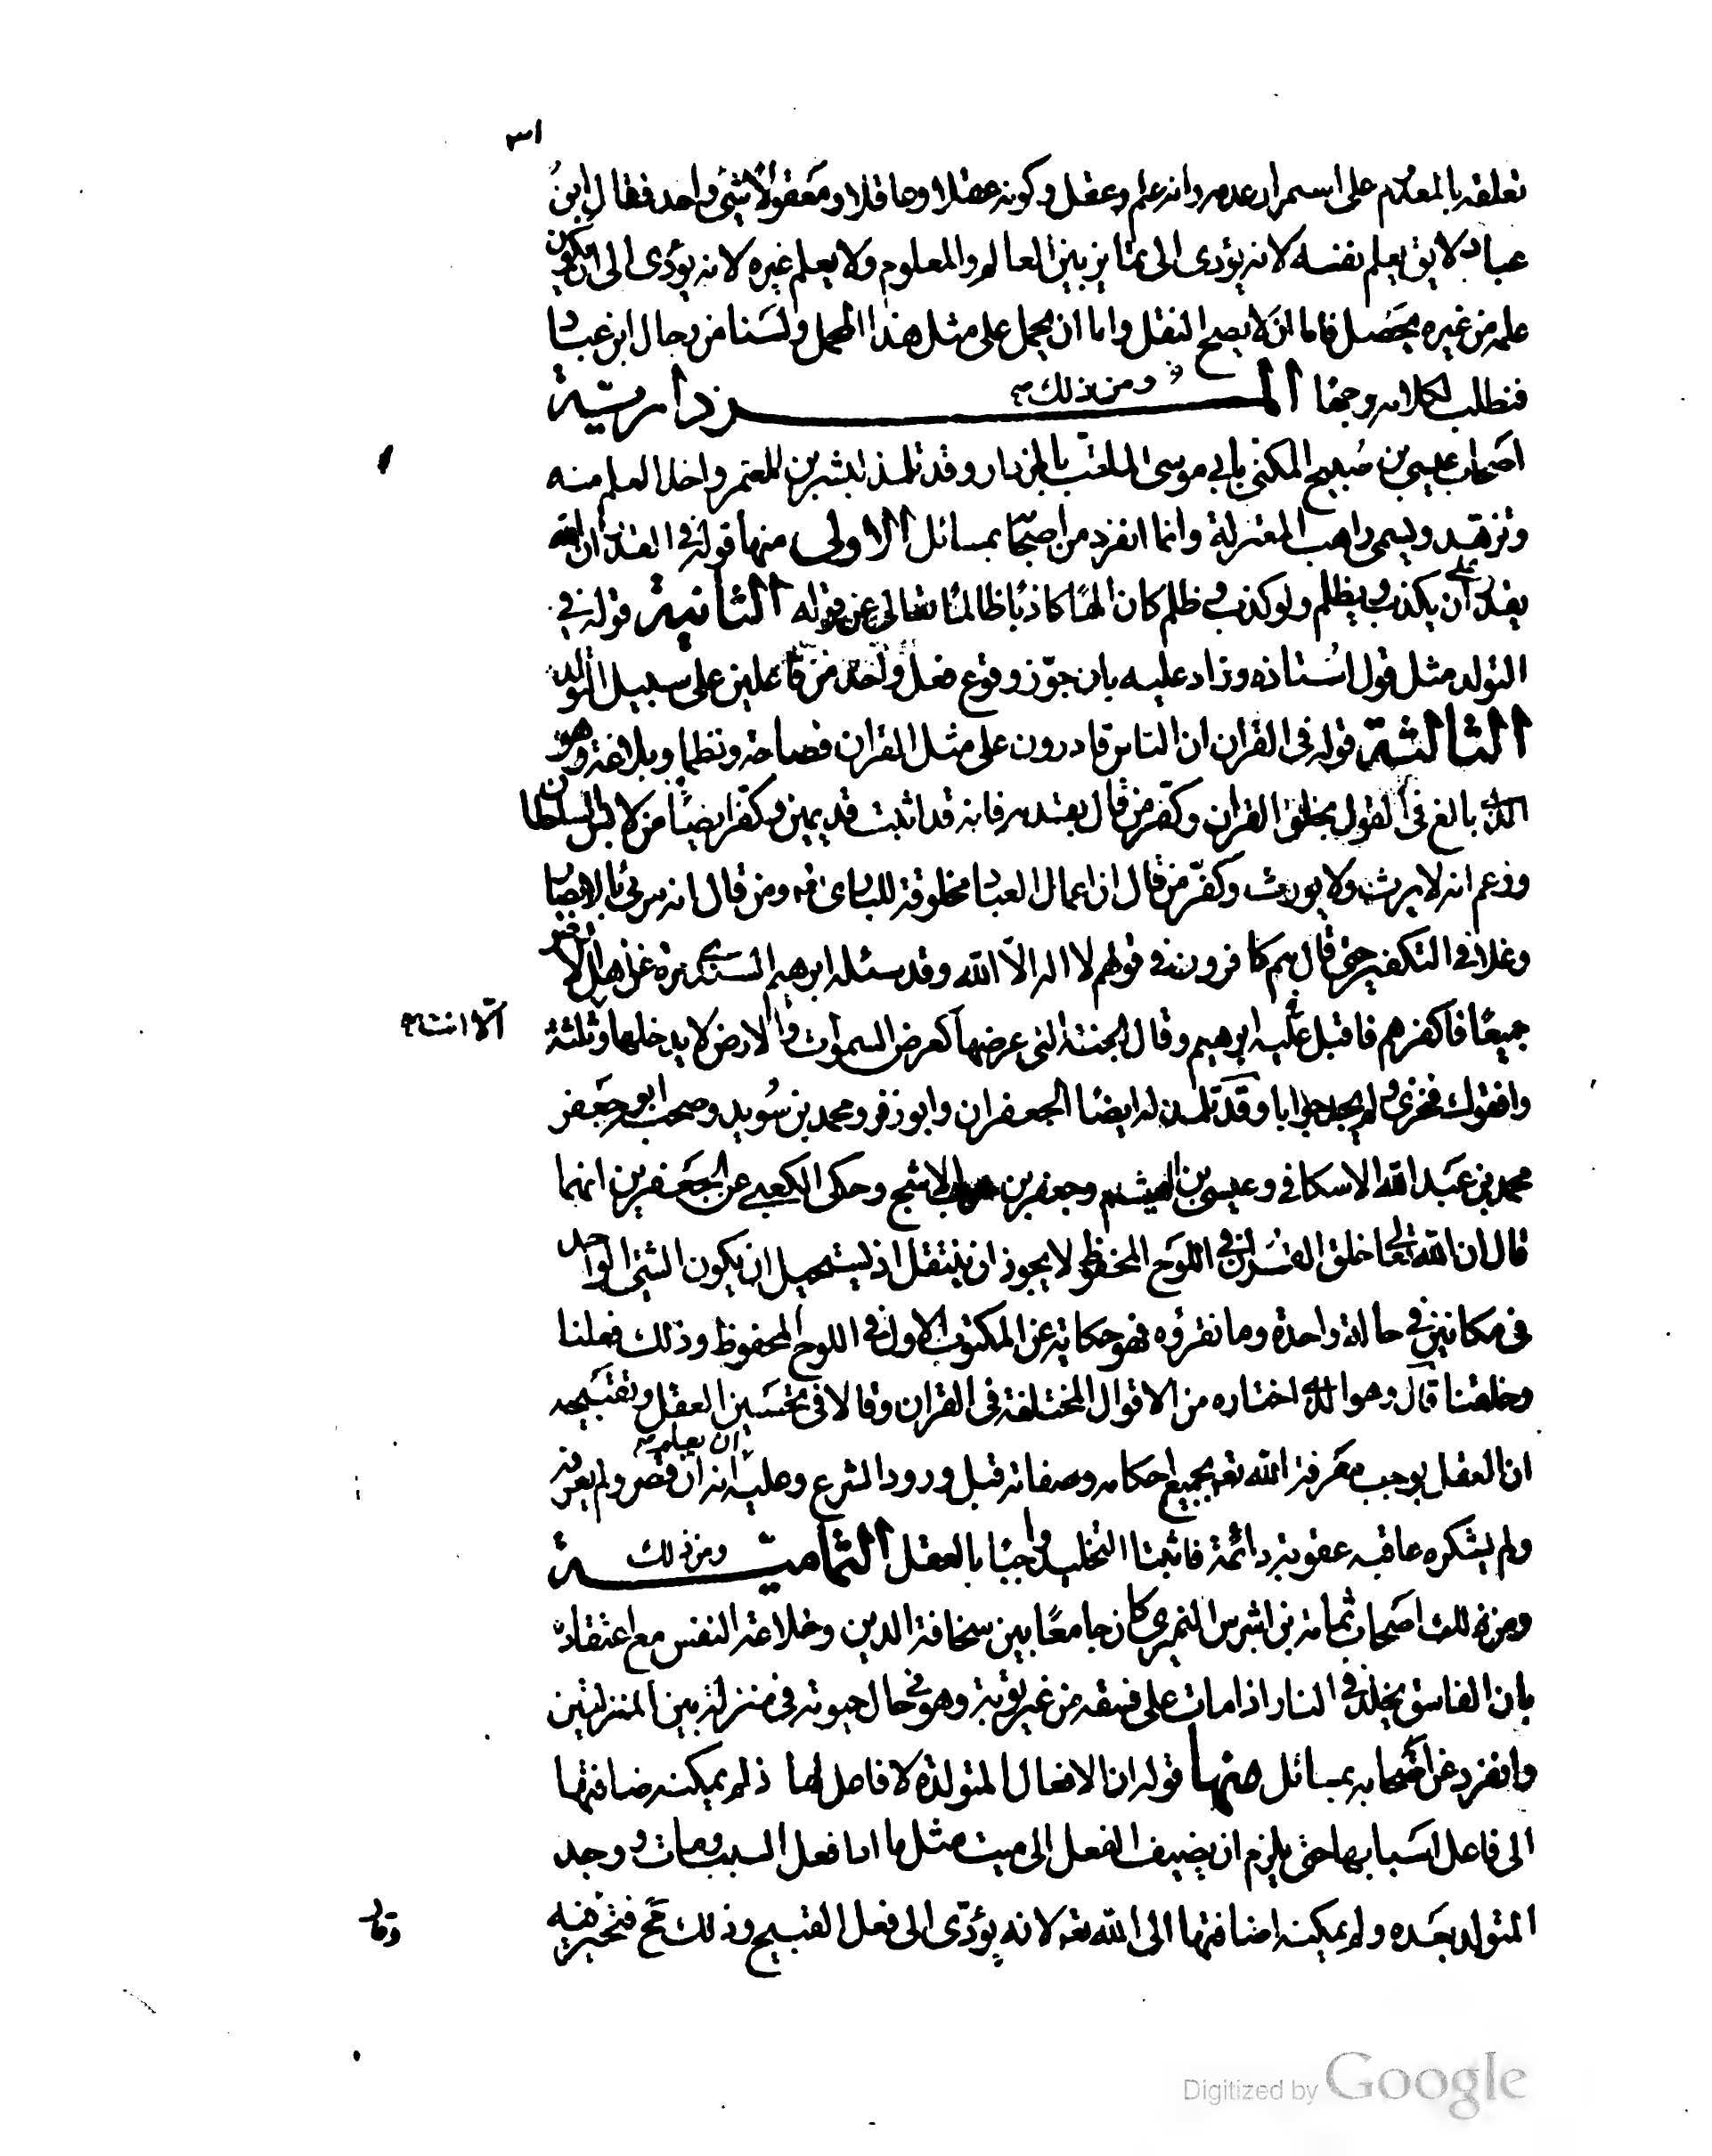 ٣١
تعلقه بالمعدوم على استمرار عدمه وانه علم وعقل وكونه عقلا وعاقلا ومعقولا شئ واحد فقال ابن
عباد لا يق يعلم نفسه لانه يؤدى الى تمايز بين العالم والمعلوم ولا يعلم غيره لانه يؤدى الى ان يكون
علمه من غيره يحصل فاما ان لا يصح النقل واما ان يحمل على مثل هذا المحمل ولسنا من رجال ابن عباد
فنطلب لكلامه وجها ومن ذلك المزدارية
اصحاب عيسى بن صبيح المكنى بابى موسى الملقب بالمزدار وقد تلمذ لبشر بن المعتمر واخذ العلم منه
وتزهد ويسمى راهب المعتزلة وانما انفرد من اصحابه بمسائل الاولى منها قوله فى القدر ان الله
يقدر على ان يكذب ويظلم ولو كذب وظلم كان الها كاذبا ظالما تعالى عن قوله الثانية قوله فى
التولد مثل قول استاذه وزاد عليه بان جوز وقوع فعل واحد من فاعلين على سبيل التولد
الثالثة قوله فى القران ان الناس قادرون على مثل القران فصاحة ونظما وبلاغة وهو
الذى بالغ فى القول بخلق القران وكفر من قال بقدمه فانه قد اثبت قديمين وكفر ايضا من لابس السلطان
وزعم انه لا يرث ولا يورث وكفر من قال ان اعمال العباد مخلوقة للبارى تع ومن قال انه مرئى بالابصار
وغلا فى التكفير حتى قال هم كافرون فى قولهم لا اله الا الله وقد سئله ابرهيم السندى مرة عن اهل الارض
جميعا فاكفرهم فاقبل عليه ابرهيم وقال الجنة التى عرضها كعرض السموات والارض لا يدخلها وثلثة
الا انت
وافقوك فخزى ولم يجد جوابا وقد تلمذ له ايضا الجعفران وابو زفر ومحمد بن سويد وصحب ابو جعفر
محمد بن عبد الله الاسكافى وعيسى بن الهيثم وجعفر بن حرب الاشج وحكى الكعبى عن الجعفرين انهما
قال ان الله تعالى خلق القران فى اللوح المحفوظ لا يجوز ان ينتقل اذ يستحيل ان يكون الشئ الواحد
فى مكانين فى حالة واحدة وما نقرؤه فهو حكاية عن المكتوب الاول فى اللوح المحفوظ وذلك فعلنا
وخلقنا قال وهو الذى اختاره من الاقوال المختلفة فى القران وقالا فى تحسين العقل وتقبيحه
ان العقل يوجب معرفة الله تع بجميع احكامه وصفاته قبل ورود الشرع وعليه ان يعلم انه ان قصر ولم يعرفه
ولم يشكره عاقبه عقوبة دائمة فاثبتا التخليد واجبا بالعقل ومن ذلك الثمامية
ومن ذلك اصحاب ثمامة بن اشرس النميرى كان جامعا بين سخافة الدين وخلاعة النفس مع اعتقاده
بان الفاسق يخلد فى النار اذا مات على فسقه من غير توبة وهو فى حال حيوته فى منزلة بين المنزلتين
وانفرد عن اصحابه بمسائل منها قوله ان الافعال المتولدة لا فاعل لها ذلم يمكنه ضافتها
الى فاعل اسبابها حتى يلزم ان يضيف الفعل الى ميت مثل ما اذا فعل السبب ومات ووجد
المتولد بعده ولم يمكنه اضافتها الى الله تع لانه يؤدى الى فعل القبيح وذلك مح فتحير فيه
وقا